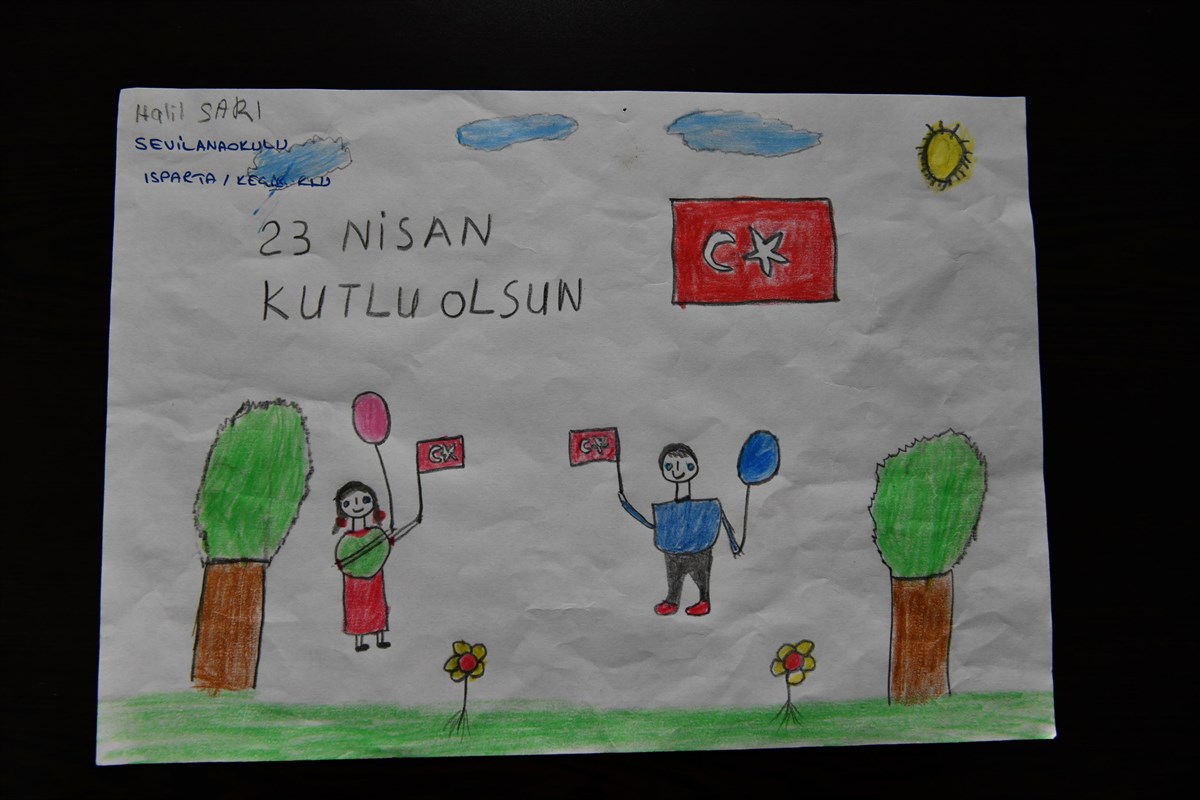 Halil SARI
SEVİLANAOKULU
ISPARTA /
23 NİSAN
KUTLU OLSUN